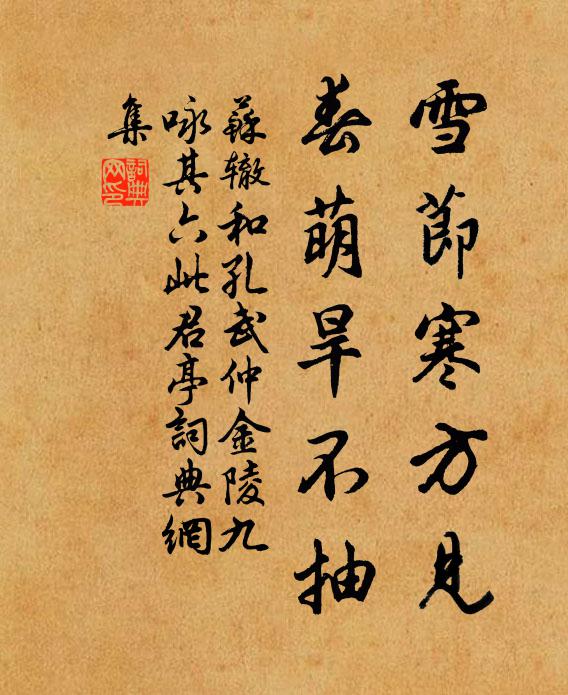 雪節寒方見
春萌旱不抽
蘇辙和孔武仲金陵九
咏其六此君亭詞典網
集
詞典網印